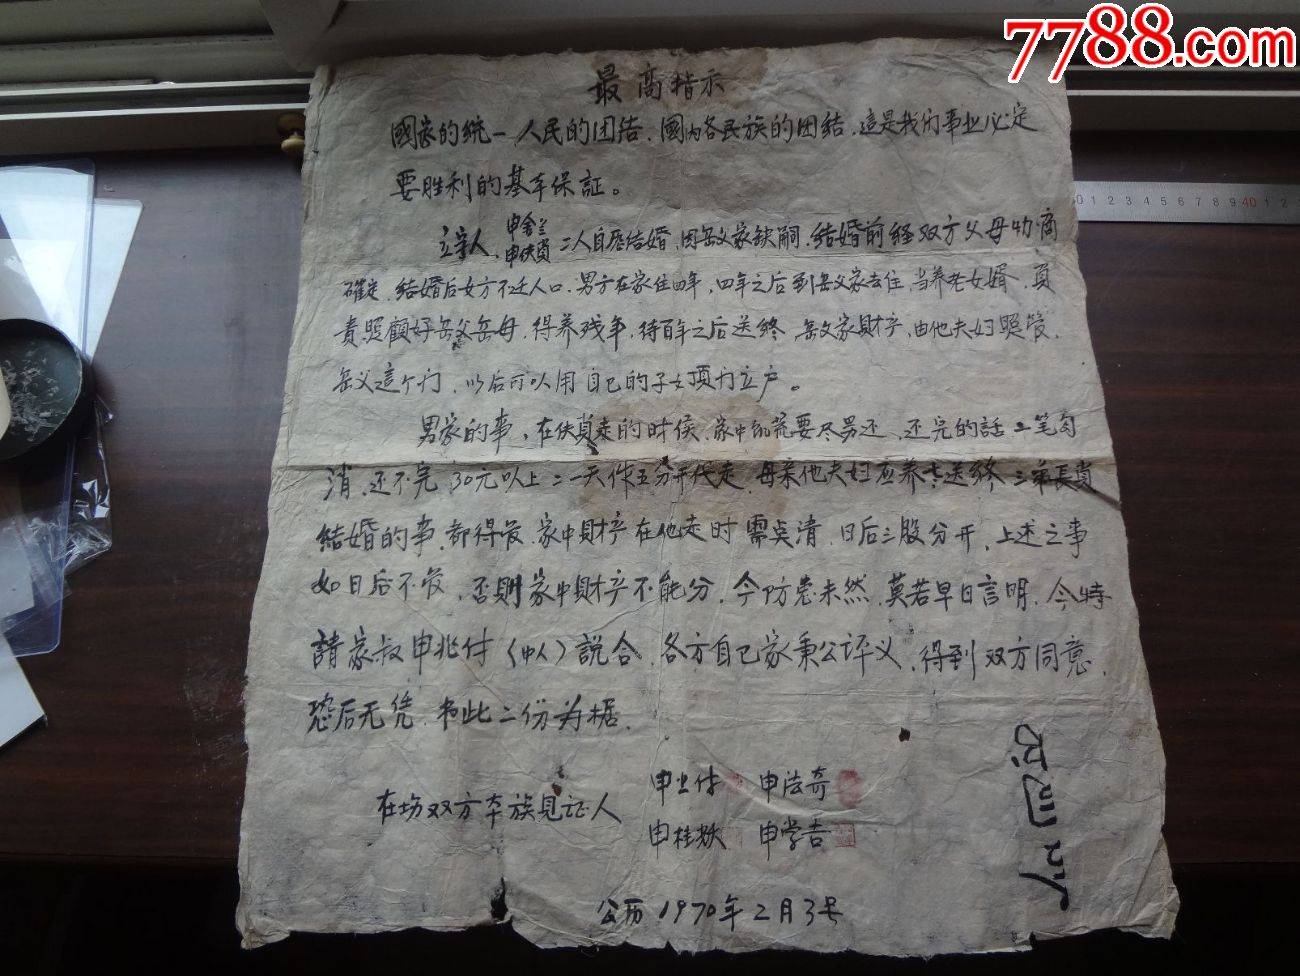 7788.com
最高指示
國家的统一、人民的团结、國内各民族的团结、這是我们事业必定
要胜利的基本保証。
立字人 申金兰 申伏員 二人自愿结婚,因岳父家缺嗣,结婚前经双方父母协商
確定,结婚后女方不迁人口,男方在家住四年,四年之后到岳父家去住,当养老女婿,負
責照顧好岳父岳母,得养残年,待百年之后送終,岳父家財产,由他夫妇照管,
岳父這个门,以后可以用自己的子女頂门立户。
男家的事,在伏員走的时侯,家中飢荒要尽另还,还完的話一笔勾
消,还不完30元以上二一天作五分开代走,母亲他夫妇应养老送終,三弟長負
結婚的事,都得管,家中財产在他走时需点清,日后三股分开,上述之事
如日后不管,否則家中財产不能分,今防患未然,莫若早日言明,今特
請家叔申兆付(中人)説合,各方自己家秉公评义,得到双方同意,
恐后无凭,书此二份为椐.
在坊双方本族見证人
申上付 申法奇
申桂 申学吉
公历1970年2月3号